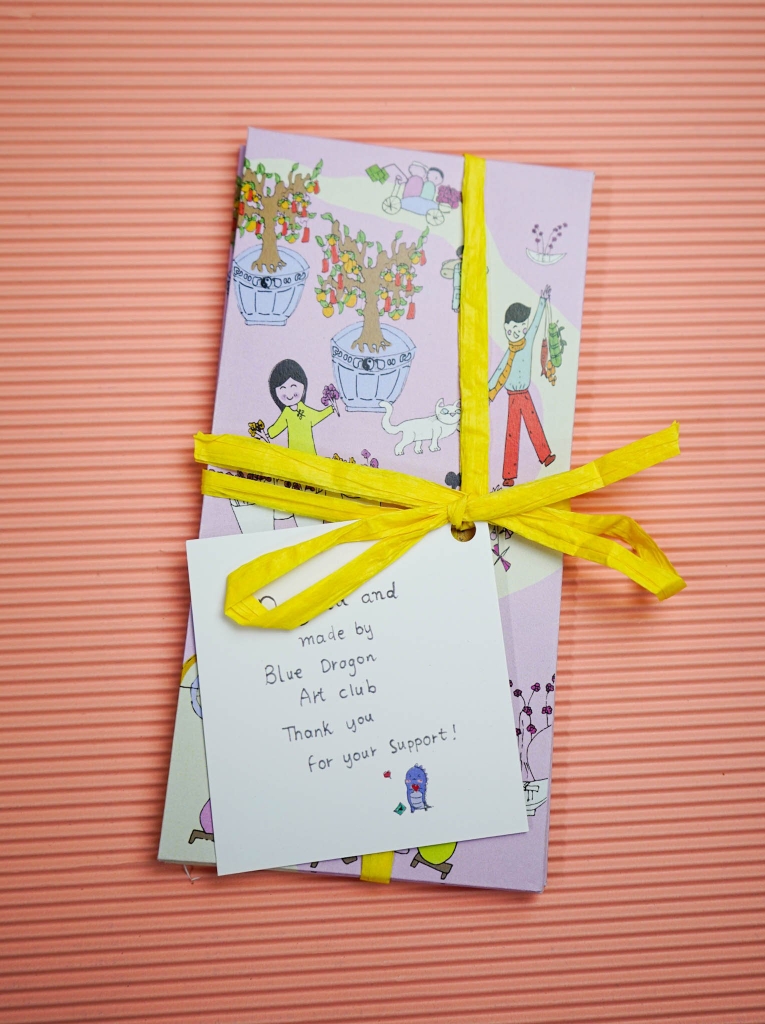 and
made by
Blue Dragon
Art club
Thank you
for your Support!